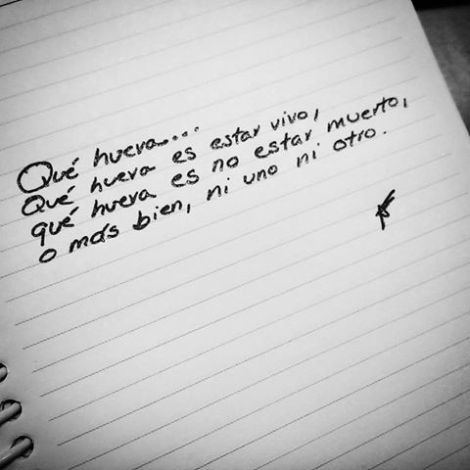 Qué hueva...
Qué hueva es estar vivo,
qué hueva es no estar muerto,
o más bien, ni uno ni otro.